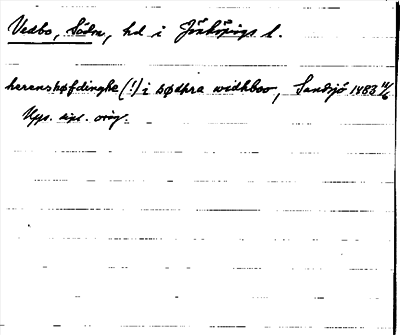 Vedbo, Södra, hd i Jönköpings l.
herenshøfdinghe (!) i sødhra widhboo, Sandsjö 1483 11/6
Ups. dipl. orig.